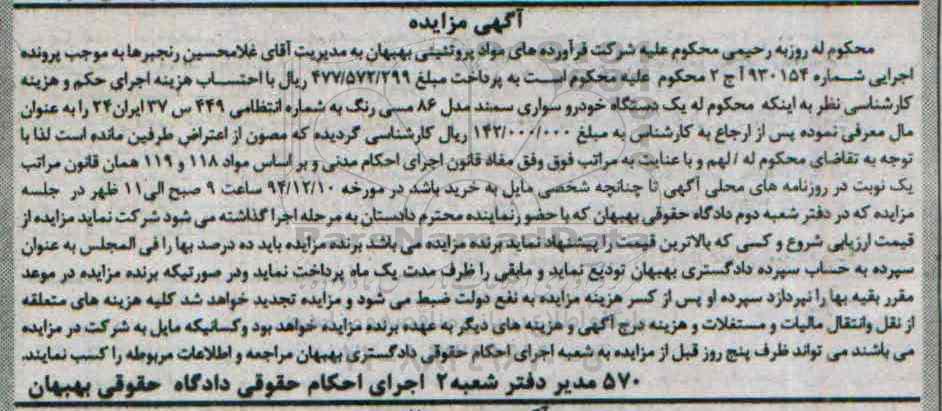 آگهی مزایده
محکوم له روزبه رحیمی محکوم علیه شرکت فرآورده های مواد پروتئینی بهبهان به مدیریت آقای غلامحسین رنجبرها به موجب پرونده
اجرایی شماره ۹۳۰۱۵۴ آ ج ۲ محکوم علیه محکوم است به پرداخت مبلغ ۴۷۷/۵۷۲/۲۹۹ ریال با احتساب هزینه اجرای حکم و هزینه
کارشناسی نظر به اینکه محکوم له یک دستگاه خودرو سواری سمند مدل ۸۶ مسی رنگ به شماره انتظامی ۴۴۹ س ۳۷ ایران ۲۴ را به عنوان
مال معرفی نموده پس از ارجاع به کارشناس به مبلغ ۱۴۳/۰۰۰/۰۰۰ ریال کارشناسی گردیده که مصون از اعتراض طرفین مانده است لذا با
توجه به تقاضای محکوم له / لهم و با عنایت به مراتب فوق وفق مفاد قانون اجرای احکام مدنی و بر اساس مواد ۱۱۸ و ۱۱۹ همان قانون مراتب
یک نوبت در روزنامه های محلی آگهی تا چنانچه شخصی مایل به خرید باشد در مورخه ۹۴/۱۲/۱۰ ساعت ۹ صبح الی ۱۱ ظهر در جلسه
مزایده که در دفتر شعبه دوم دادگاه حقوقی بهبهان که با حضور نماینده محترم دادستان به مرحله اجرا گذاشته می شود شرکت نماید مزایده از
قیمت ارزیابی شروع و کسی که بالاترین قیمت را پیشنهاد نماید برنده مزایده می باشد برنده مزایده باید ده درصد بها را فی المجلس به عنوان
سپرده به حساب سپرده دادگستری بهبهان تودیع نماید و مابقی را ظرف مدت یک ماه پرداخت نماید ودر صورتیکه برنده مزایده در موعد
مقرر بقیه بها را نپردازد سپرده او پس از کسر هزینه مزایده به نفع دولت ضبط می شود و مزایده تجدید خواهد شد کلیه هزینه های متعلقه
از نقل وانتقال مالیات و مستغلات و هزینه درج آگهی و هزینه های دیگر به عهده برنده مزایده خواهد بود وکسانیکه مایل به شرکت در مزایده
می باشند می تواند ظرف پنج روز قبل از مزایده به شعبه اجرای احکام حقوقی دادگستری بهبهان مراجعه و اطلاعات مربوطه را کسب نمایند.
۵۷۰ مدیر دفتر شعبه۲ اجرای احکام حقوقی دادگاه حقوقی بهبهان